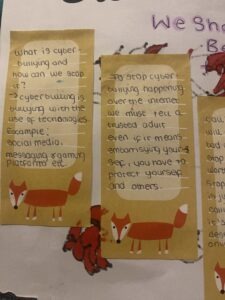 We Sho
Be
What is cyber-
bullying and
how can we stop
it?
→ cyberbullying is
bullying with the
use of technologies
Example:
social media,
messaging, gaming
platforms ect
→To stop cyber-
bullying happening
over the internet
we must tell a
trusted adult
even if it means
embarrising yours
self, you have to
protect yourself
and others.
can
will
bul
wor
stop
is ju
cau
it's
des
any